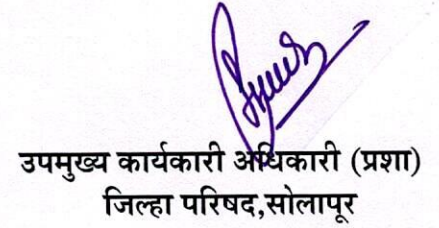 उपमुख्य कार्यकारी अधिकारी (प्रशा)
जिल्हा परिषद,सोलापूर